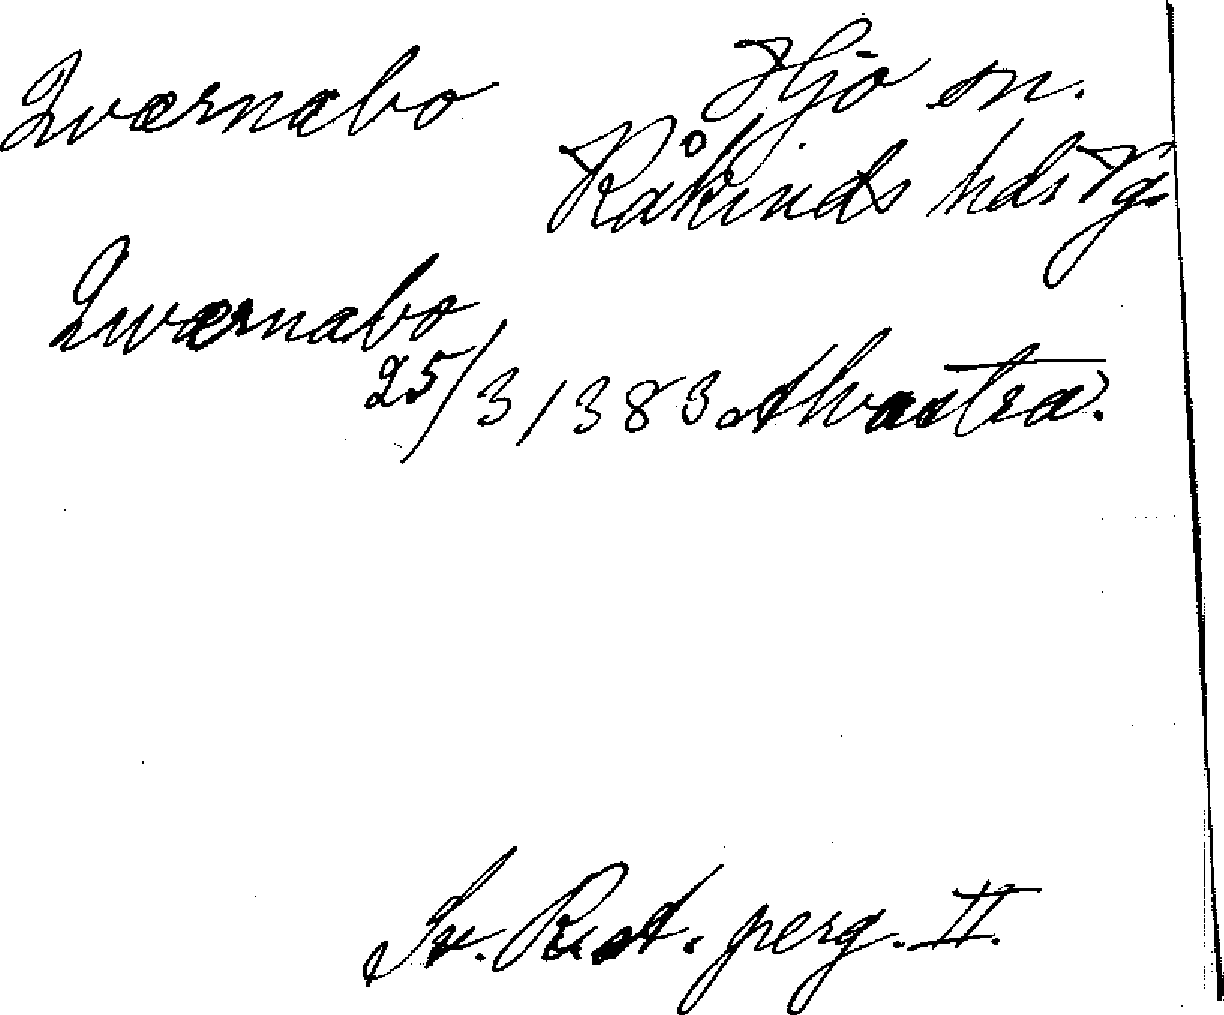 Qværnæbo
Hjo sn.
Kåkinds hds Vg.
Qwærnabo
25/3 1383 Alvastra.
Sv. Riat. perg. II.